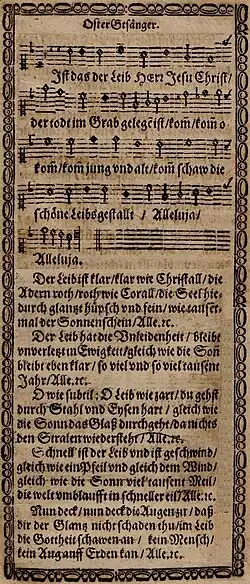 OsterGesänger.
Ist das der Leib HErr Jesu Christ/
der todt im Grab gelegẽ ist/kom̃/kom̃ o
kom̃/kom̃ jung vnd alt/kom̃ schaw die
schöne Leibsgestallt / Alleluja/
Alleluja.
Der Leib ist klar/klar wie Christall/die
Adern roth/roth wie Corall/die Seel hie-
durch glantzt hüpsch vnd fein/wie tauset-
mal der Sonnenschein/Alle.ꝛc.
Der Leib hat die Vnleidenheit / bleibt
vnverletzt in Ewigkeit/gleich wie die Soñ
bleibt eben klar/so viel vnd so viel tausent
Jahr/Alle.ꝛc.
O wie subtil: O Leib wie zart/du gehst
durch Stahl vnd Eysen hart / gleich wie
die Sonn das Glaß durchgeht/da nichts
den Stralen widersteht/Alle.ꝛc.
Schnell ist der Leib vnd ist geschwind/
gleich wie ein Pfeil vnd gleich dem Wind/
gleich wie die Sonn viel tausent Meil/
die welt vmblaufft in schneller eil/Alle.ꝛc.
Nun deck/nun deck die Augen zu/daß
dir der Glantz nicht schaden thu/im Leib
die Gottheit schawen an / kein Mensch/
kein Aug auff Erden kan/Alle.ꝛc.